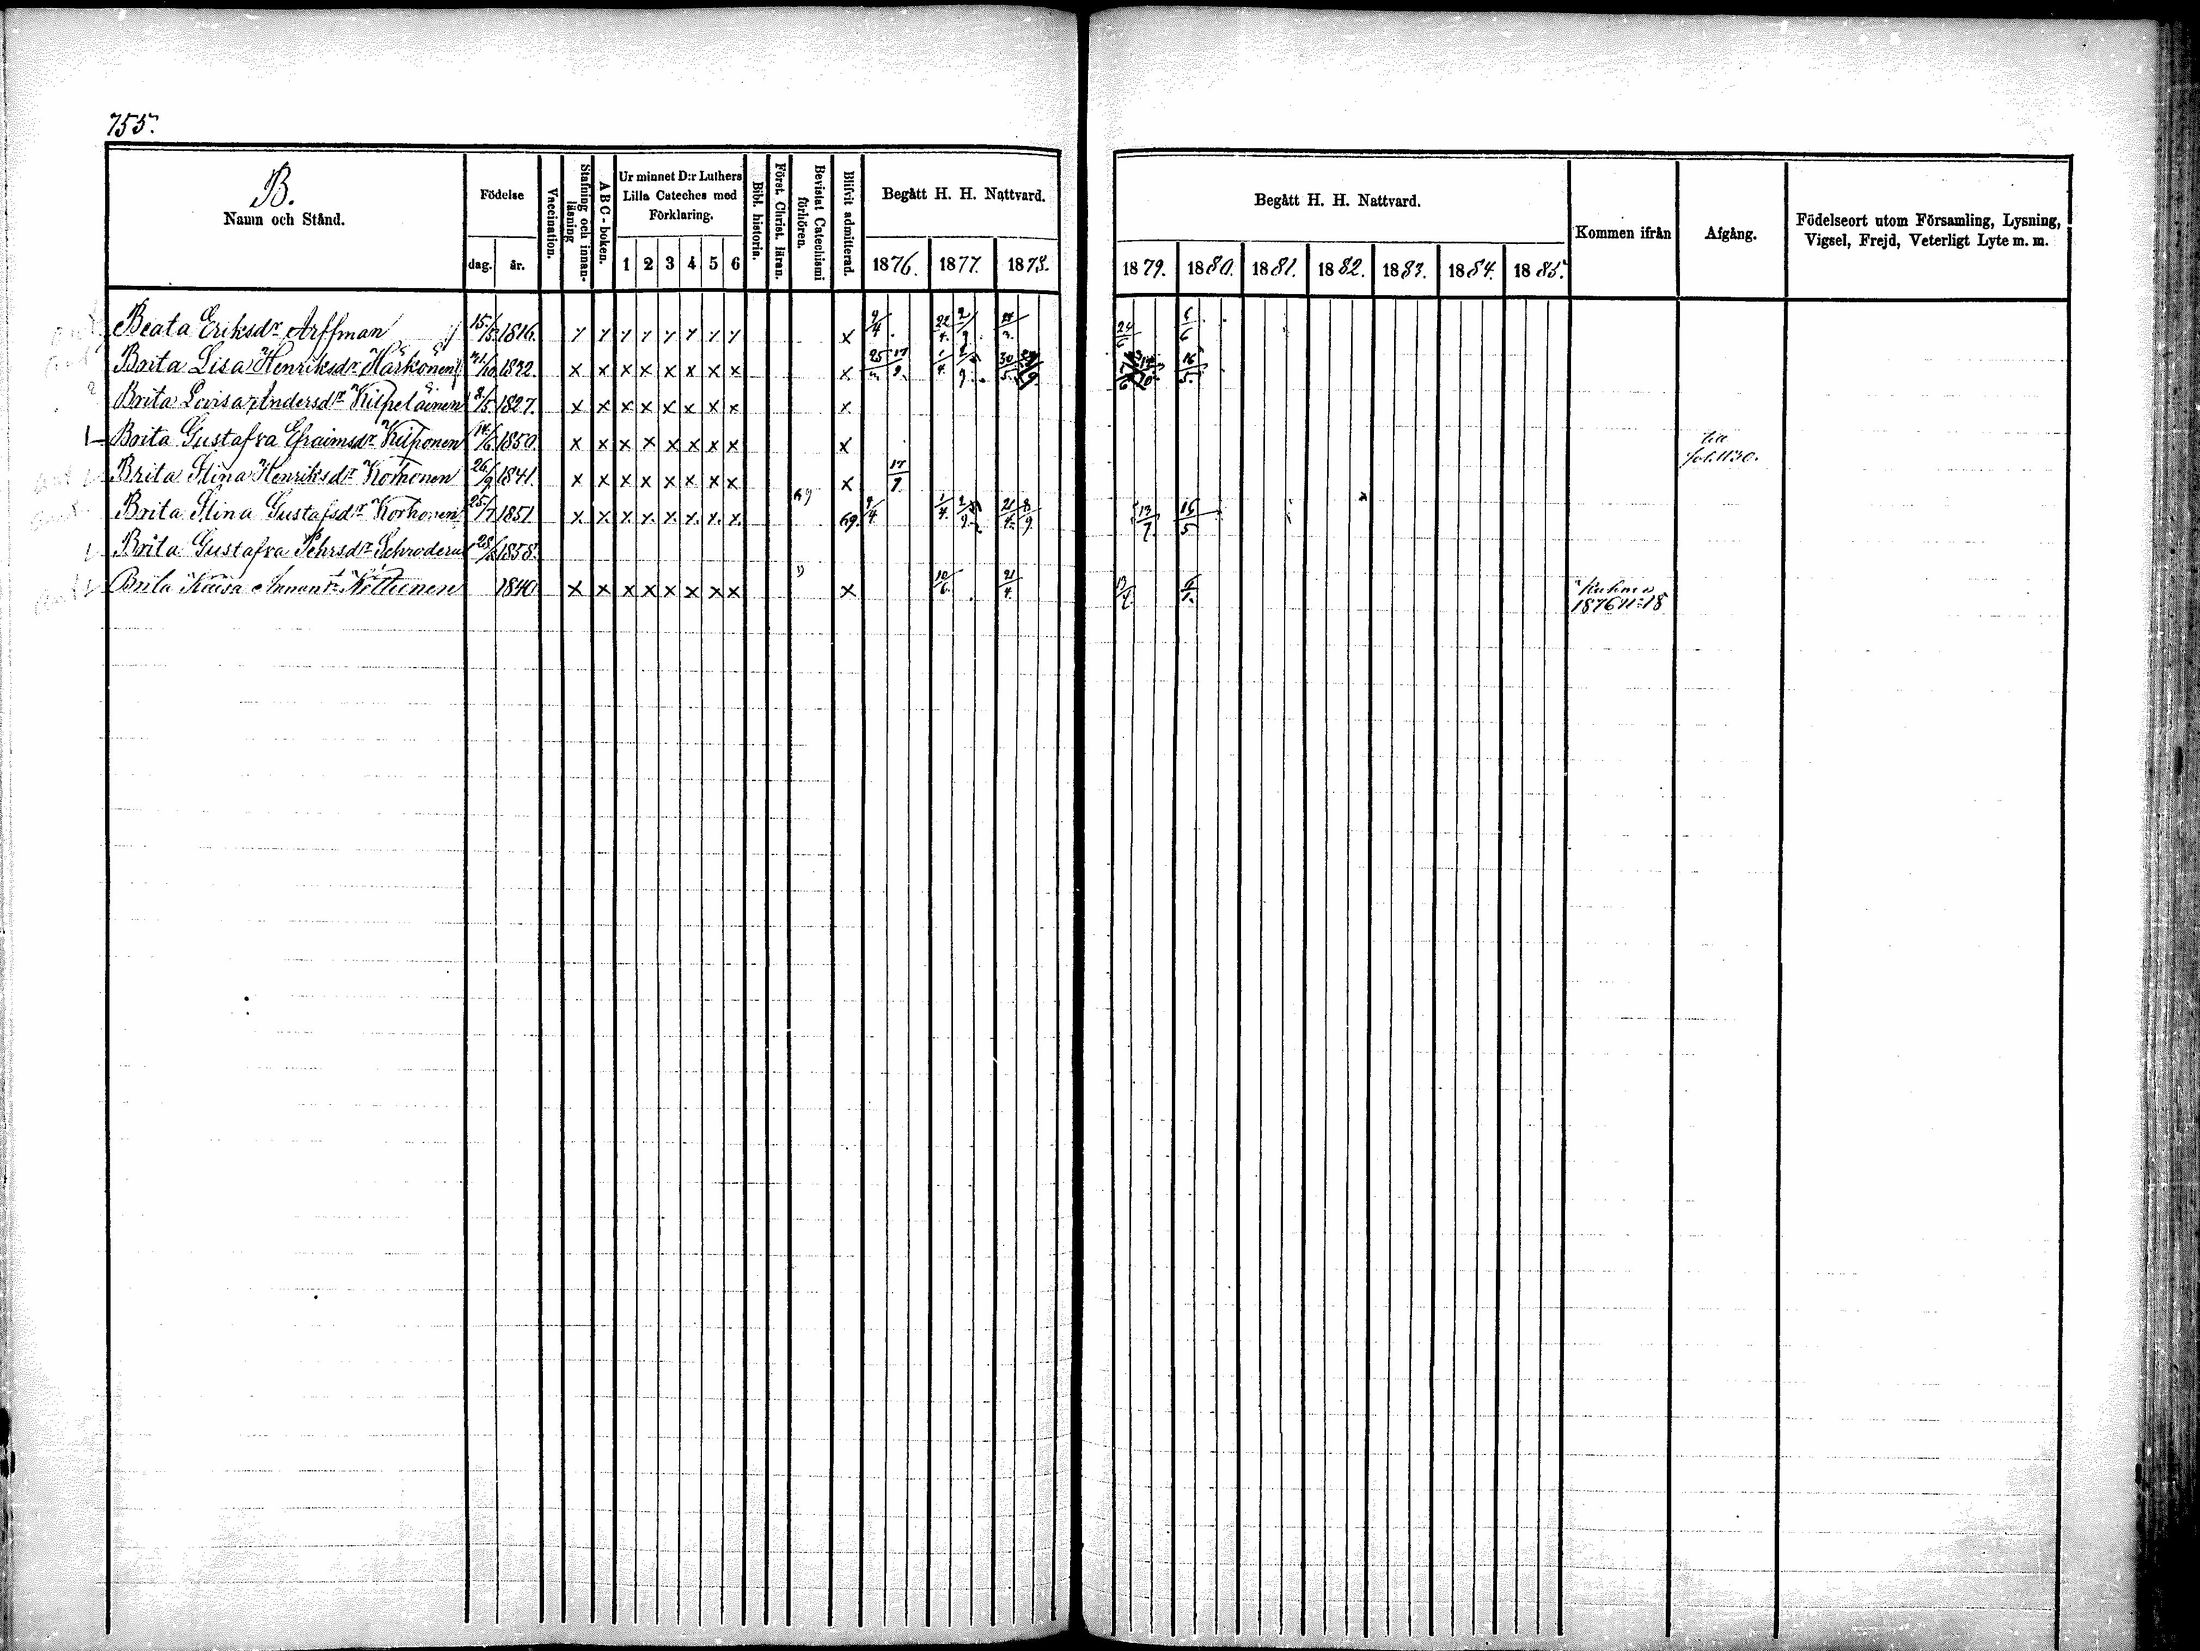 755.
B.
Namn och Stånd.
Födelse
dag. år.
Vaccination.
Stafning och innan-läsning
ABC-boken.
Ur minnet D:r Luthers Lilla Cateches med Förklaring.
1 2 3 4 5 6
Bibl. historia.
Först. Christ. läran.
Bevistat Catechismi förhören.
Blifvit admitterad.
Begått H. H. Nattvard.
1876. 1877. 1878.
Begått H. H. Nattvard.
1879. 1880. 1881. 1882. 1883. 1884. 1885.
Kommen ifrån
Afgång.
Födelseort utom Församling, Lysning, Vigsel, Frejd, Veterligt Lyte m. m.
Beata Eriksdr Arffman 15/5 1816. x x x x x x x x x 9/4 22/4 2/9 24/6 6/6
Brita Lisa Henriksdr Härkönen 1822. x x x x x x x x x 25 17/9 1/4 2/9 30/5 16/5
Brita Lovisa Andersdr Kilpeläinen 2/5 1827. x x x x x x x x x
Brita Gustafva Efraimsdr Kilponen 14/6 1850. x x x x x x x x x till fol. 1130.
Brita Stina Henriksdr Korhonen 26/9 1841. x x x x x x x x x 17/9
Brita Stina Gustafsdr Korhonen 25/7 1851 x x x x x x x x 69 69. 9/4 1/4 2/9 21/4 8/9 13/7 16/5
Brita Gustafva Pehrsdr Schroderus 28 1858.
Brita Kaisa 1840 x x x x x x x x x 10/6 21/4 Kuhmo 1876 N:o 18